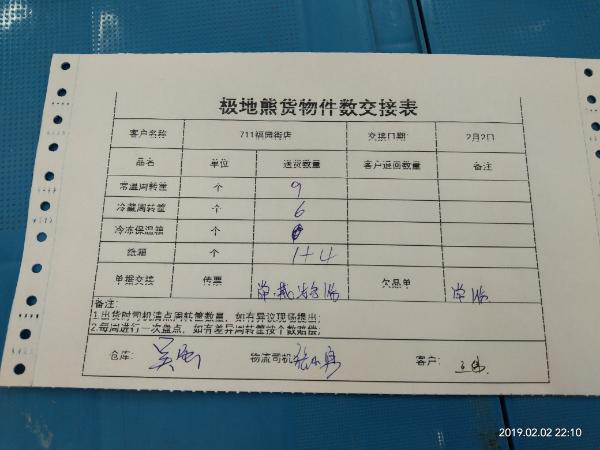 极地熊货物件数交接表
客户名称 711福园街店 交接日期: 2月2日
品名 单位 送货数量 客户退回数量 备注
常温周转筐 个 9
冷藏周转筐 个 6
冷冻保温箱 个
纸箱 个 1+4
单据交接 传票 欠品单
备注:
1.出货时司机清点周转筐数量，如有异议现场提出;
2.每周进行一次盘点，如有差异周转筐按个数赔偿;
仓库: 物流司机: 客户:
2019.02.02 22:10